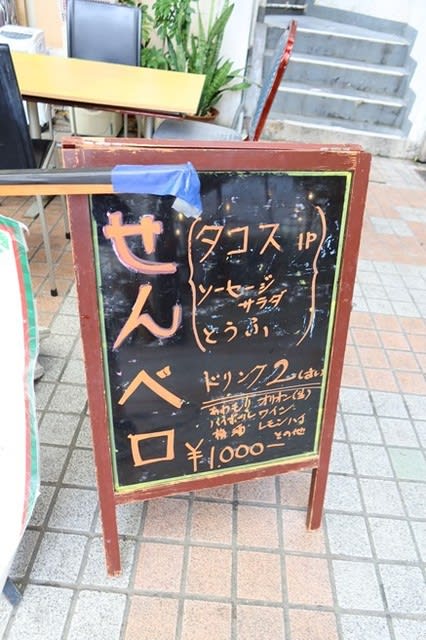 せんべロ
タコス 1P
ソーセージ
サラダ
とうふ
ドリンク2こはい
あわもり オリオン(生)
ハイボール ワイン
梅酒 レモンハイ
その他
¥1,000-